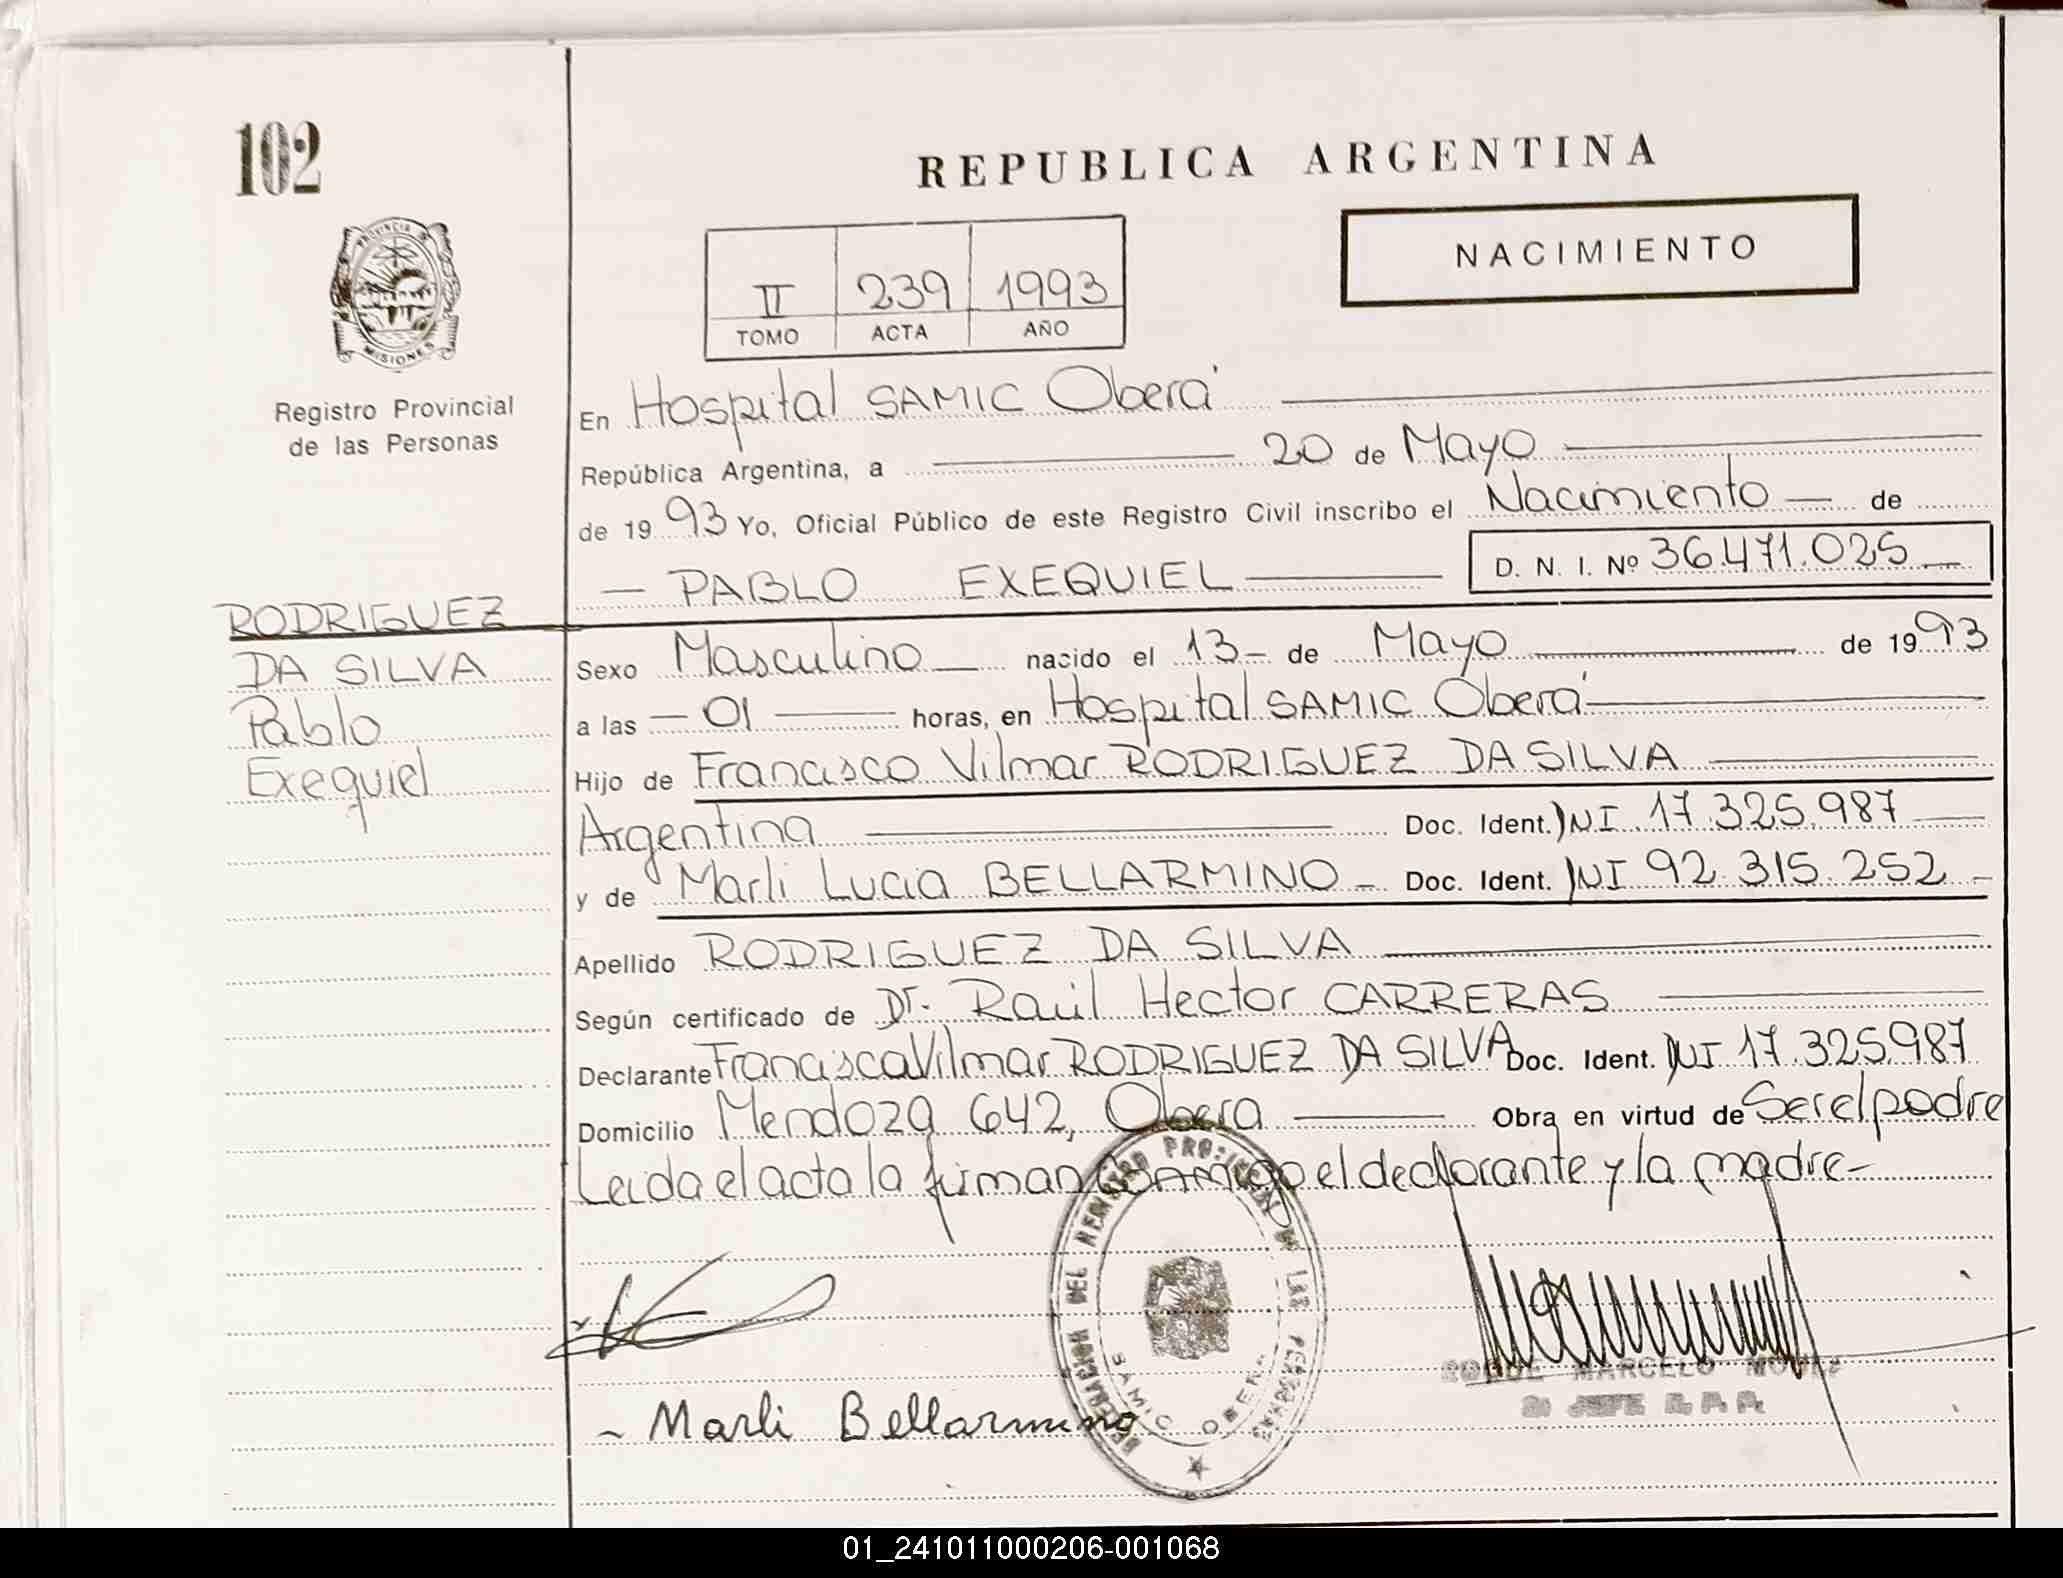 102
REPUBLICA ARGENTINA
NACIMIENTO
II 239 1993
TOMO ACTA AÑO
PROVINCIA DE
MISIONES
Registro Provincial
de las Personas
En Hospital SAMIC Oberá
República Argentina, a 20 de Mayo
de 1993 Yo, Oficial Público de este Registro Civil inscribo el Nacimiento de
PABLO EXEQUIEL D. N. I. Nº 36.471.025
RODRIGUEZ
DA SILVA
Pablo
Exequiel
Sexo Masculino nacido el 13 de Mayo de 1993
a las 01 horas, en Hospital SAMIC Oberá
Hijo de Francisco Vilmar RODRIGUEZ DA SILVA
Argentina Doc. Ident. DNI 17.325.987
y de Marli Lucia BELLARMINO Doc. Ident. DNI 92.315.252
Apellido RODRIGUEZ DA SILVA
Según certificado de Dr. Raúl Hector CARRERAS
Declarante Francisco Vilmar RODRIGUEZ DA SILVA Doc. Ident. DNI 17.325.987
Domicilio Mendoza 642, Oberá Obra en virtud de Ser el padre
Leida el acta la firman conmigo el declarante y la madre-
DELEGACIÓN DEL REGISTRO PROVINCIAL DE LAS PERSONAS
SAMIC OBERA
ROQUE MARCELO
JEFE R. P. P.
Marli Bellarmino
01_241011000206-001068